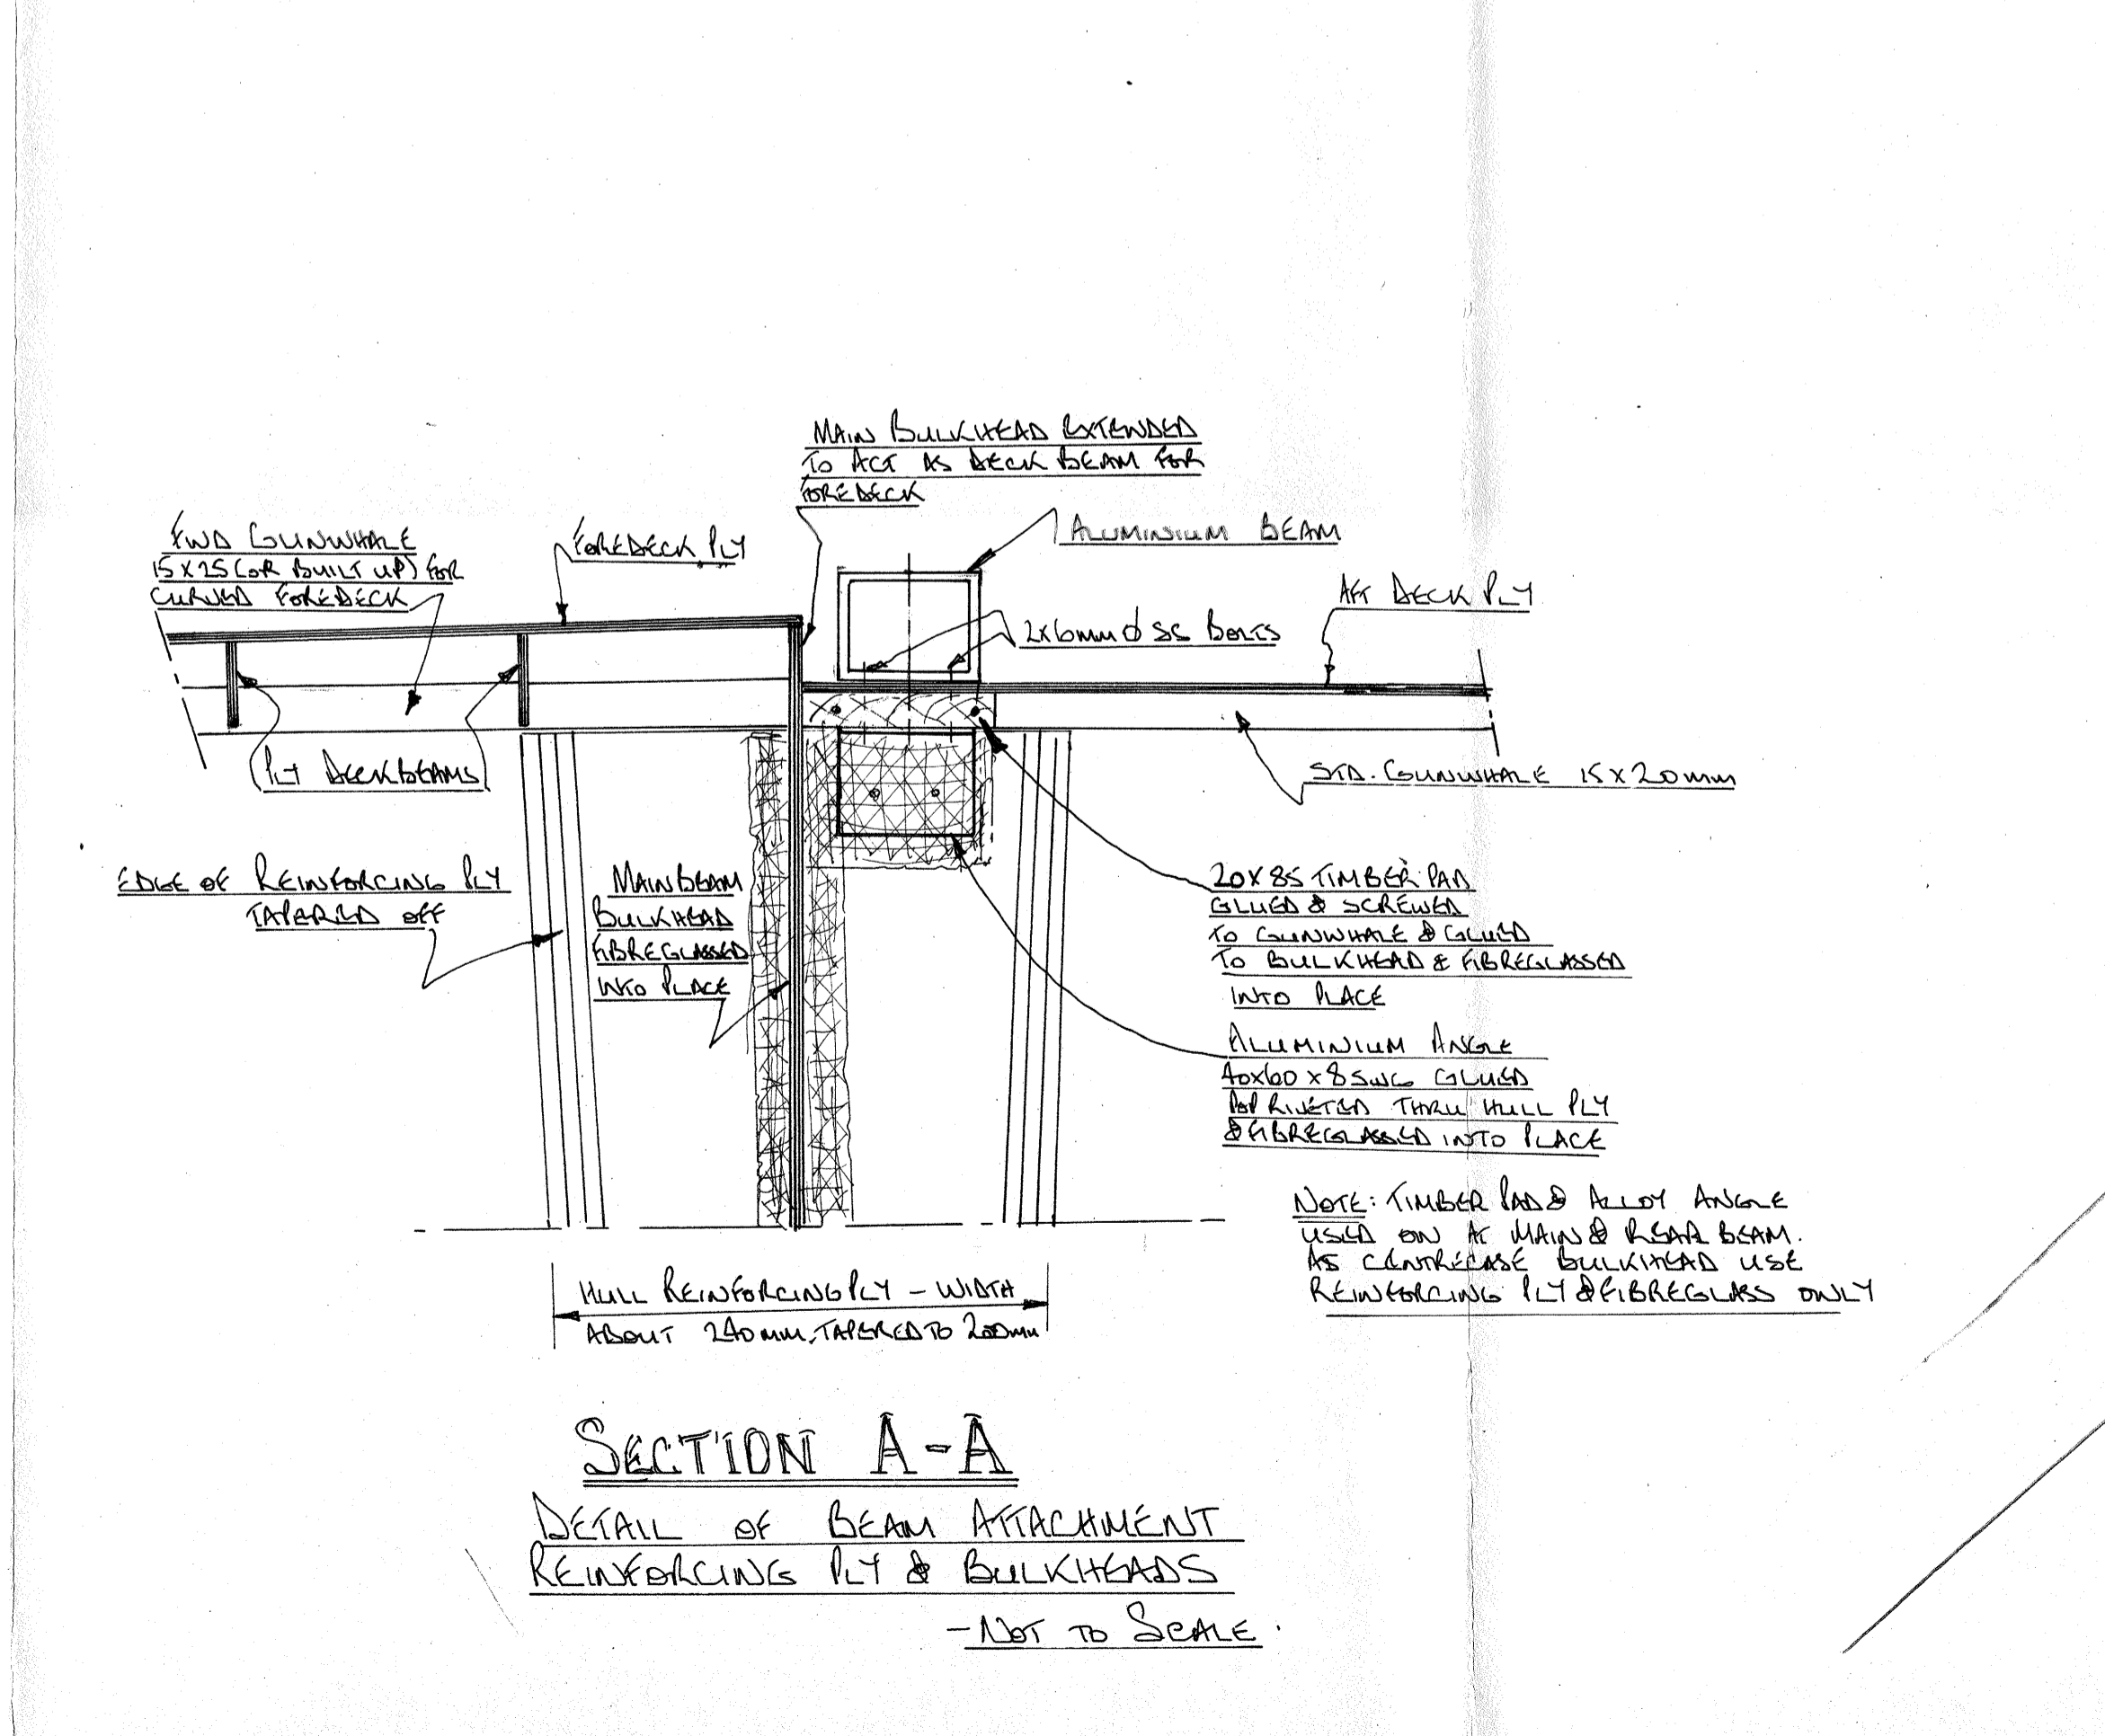 MAIN BULKHEAD EXTENDED
TO ACT AS DECK BEAM FOR
FOREDECK
FWD GUNWHALE
15 X 25 (OR BUILT UP) FOR
CURVED FOREDECK
FOREDECK PLY
ALUMINIUM BEAM
2X6mm ϕ SS BOLTS
AFT DECK PLY
PLY DECKBEAMS
STD. GUNWHALE 15 X 20mm
EDGE OF REINFORCING PLY
TAPERED OFF
MAIN BEAM
BULKHEAD
FIBREGLASSED
INTO PLACE
20X85 TIMBER PAD
GLUED & SCREWED
TO GUNWHALE & GLUED
TO BULKHEAD & FIBREGLASSED
INTO PLACE
ALUMINIUM ANGLE
40x60 x 8 SWG GLUED
POP RIVETED THRU HULL PLY
& FIBREGLASSED INTO PLACE
NOTE: TIMBER PAD & ALLOY ANGLE
USED ON AT MAIN & REAR BEAM.
AS CENTRECASE BULKHEAD USE
REINFORCING PLY & FIBREGLASS ONLY
HULL REINFORCING PLY - WIDTH
ABOUT 240 mm, TAPERED TO 200mm
SECTION A-A
DETAIL OF BEAM ATTACHMENT
REINFORCING PLY & BULKHEADS
- NOT TO SCALE.